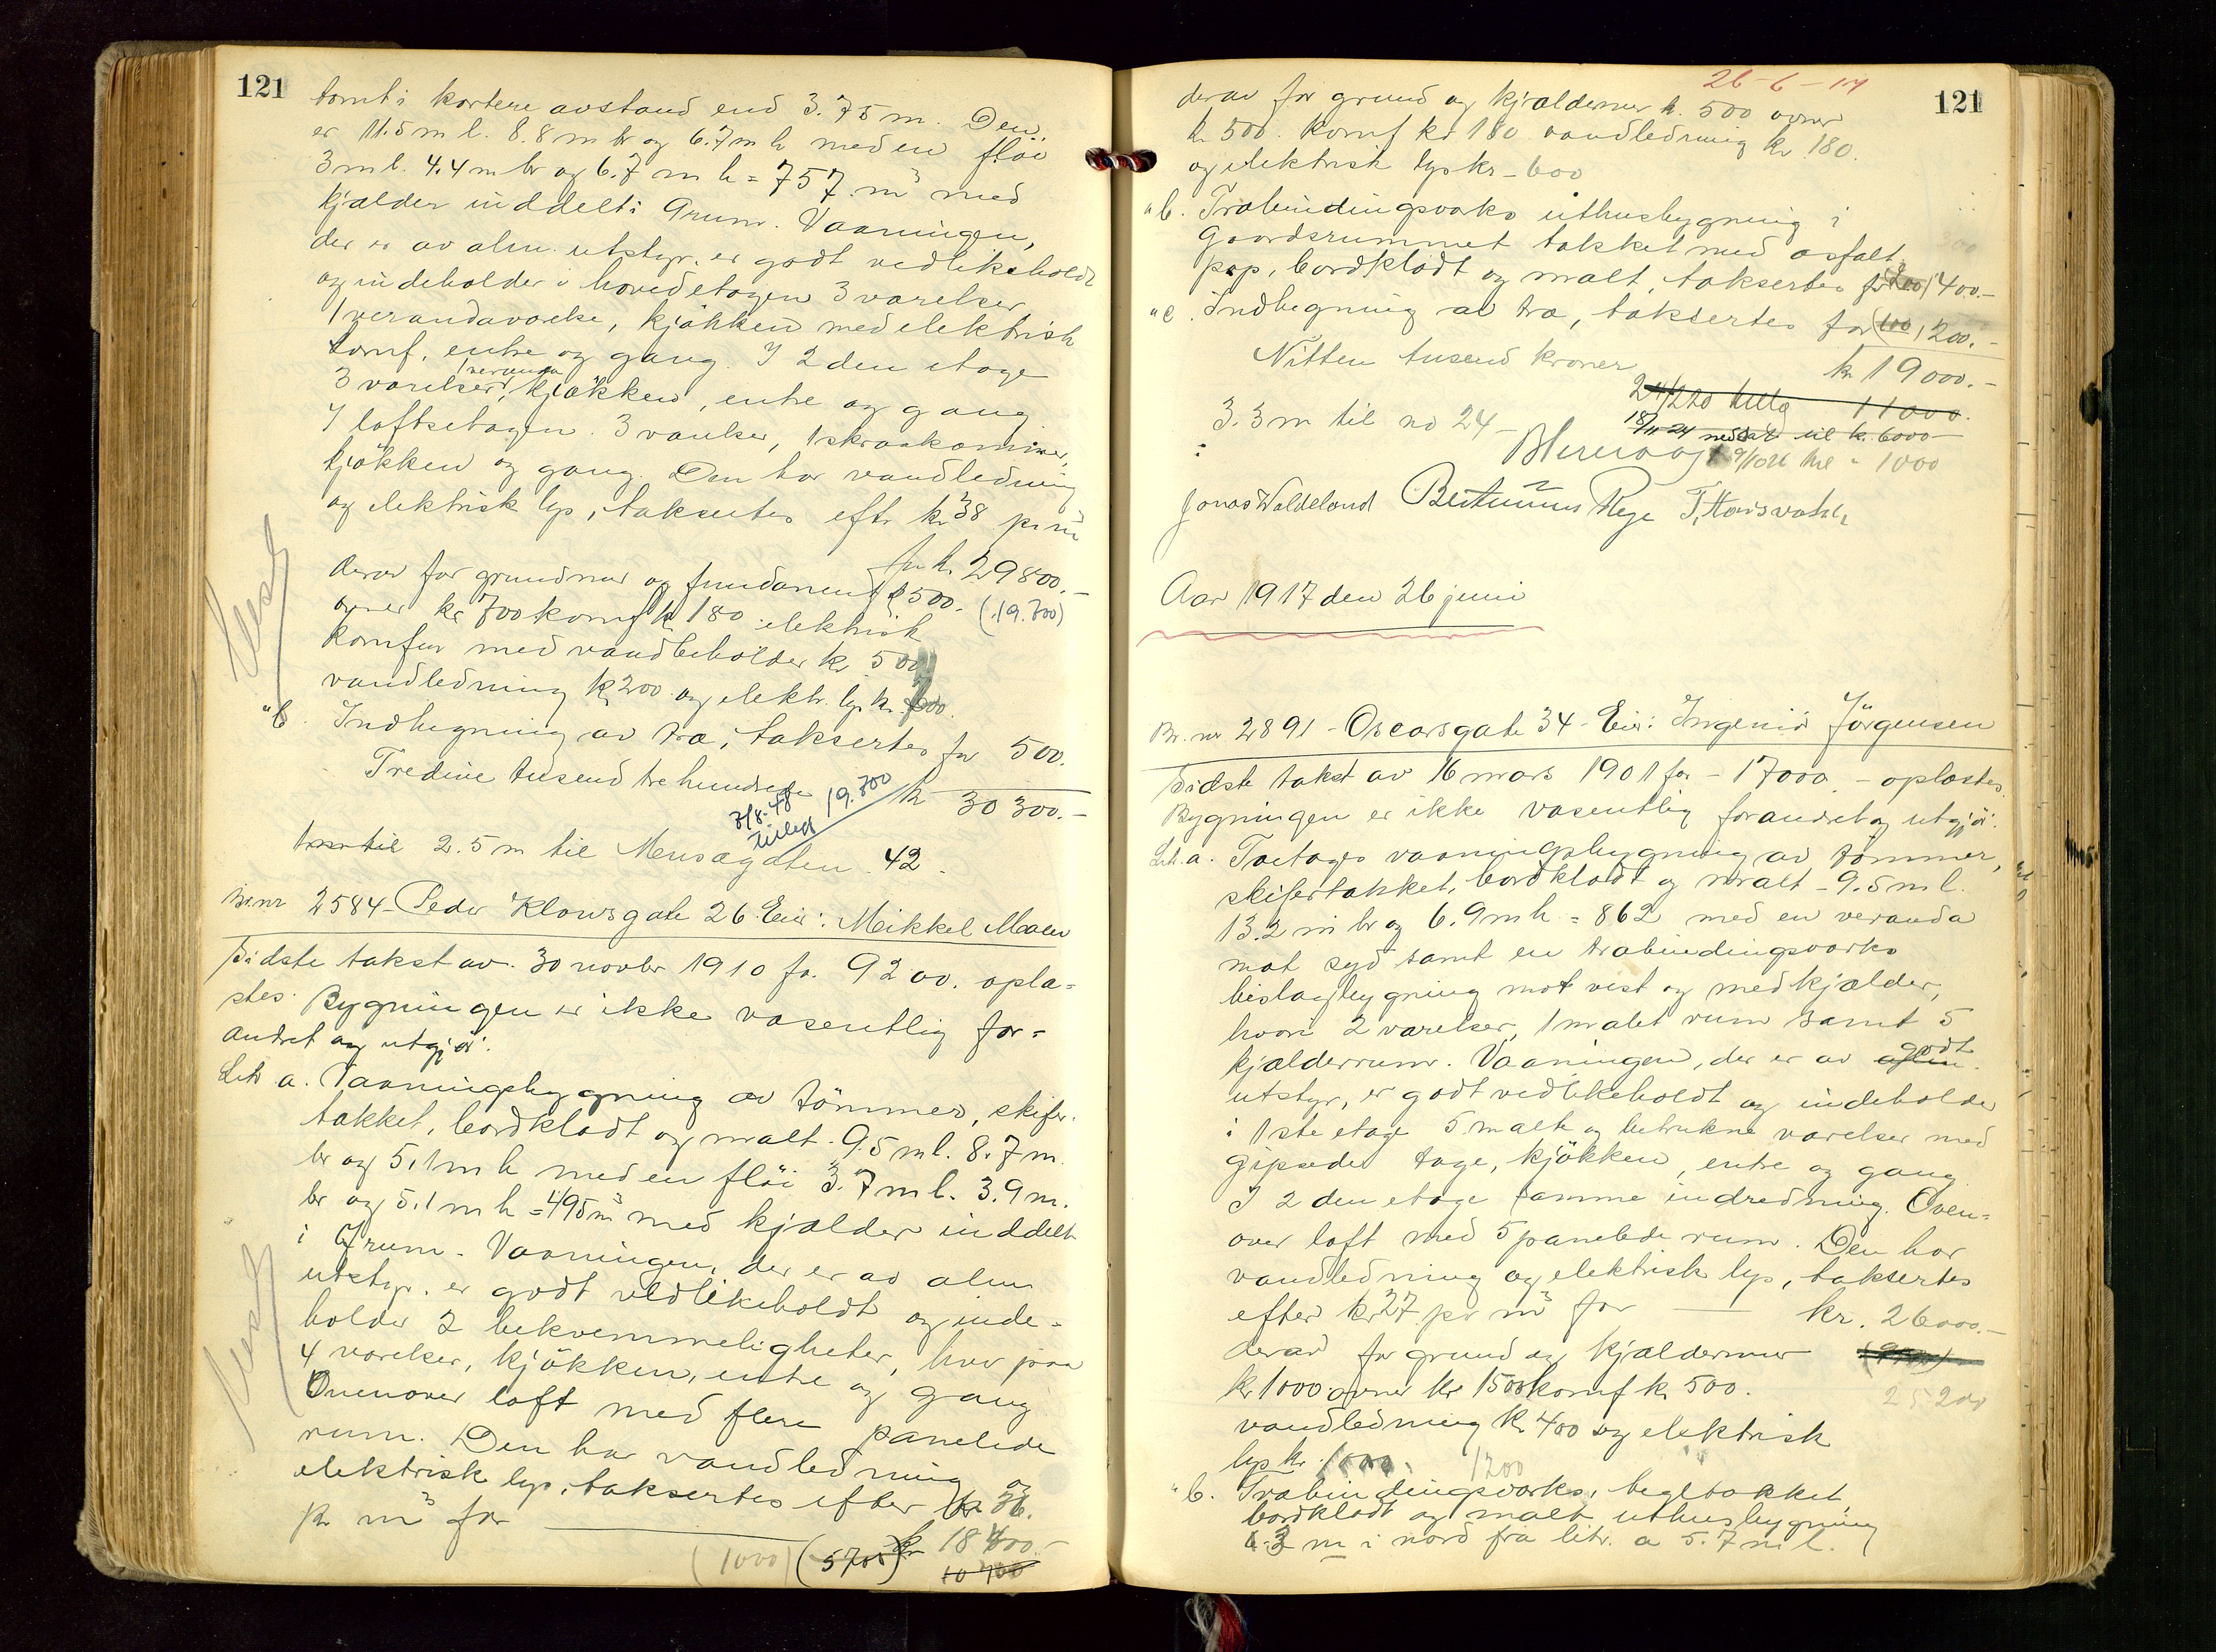 121
tomt i kortere avstand end 3.75 m. Den
er 11.5 m l. 8.8 m br og 6.7 m h med en flöi
3 m l. 4.4 m br og 6.7 m h = 757 m³ med
kjælder inddelt i 9 rum. Vaaningen,
der er av alm. utstyr, er godt vedlikeholdt
og indeholder i hovedetagen 3 værelser
1 verandaværelse, kjökken med elektrisk
komf. entre og gang. I 2den etage
3 værelser, 1 veranda, kjökken, entre og gang
I loftsetagen 3 værelser, 1 skraakammer,
kjökken og gang. Den har vandledning
og elektrisk lys, takseres eft. kr 38 pr m³
for kr. 29800.-
derav for grundmur og fundament kr 500. (19.700)
ovner kr 700 komf kr 180 elektrisk
komfur med vandbeholder kr 500
vandledning kr 200 og elektr. lys kr.
" b. Indhegning av træ, taksertes for 500.
Tredive tusend tre hundrede kr 30 300.-
7/8-48 tillegg 19.700
2.5 m til Musægaten 42.
Br.nr 2584 - Peder Klowsgate 26 Eier: Mikkel Maaen
Sidste takst av 30 novbr 1910 for 9200. oplæ=
stes. Bygningen er ikke væsentlig for=
andret og utgjör:
Litr a. Vaaningsbygning av tömmer, skifer
tækket, bordklædt og malt. 9.5 m l. 8.7 m.
br og 5.1 m h med en flöi 3.7 m l. 3.9 m.
br og 5.1 m h = 495 m³ med kjælder inddelt
i 6 rum. Vaaningen, der er av alm
utstyr, er godt vedlikeholdt og inde=
holder 2 bekvemmeligheter, hver paa
4 værelser, kjökken, entre og gang
Ovenover loft med flere panelede
rum. Den har vandledning og
elektrisk lys, taksertes efter kr 36.
pr m³ for kr 18 400.-
(1000) (5700) 10 700
26-6-17
121
derav for grund og kjældermur kr. 500 ovner
kr 500. komf kr 180 vandledning kr 180.
og elektrisk lys kr - 600
" b. Træbindingsværks uthusbygning i
gaardsrummet tækket med asfalt
pap, bordklædt og malt, taksertes for (200) 400.-
" c. Indhegning av træ, taksertes for (100) 200.-
Nitten tusend kroner kr 19000.-
24/2 20 tillæg 11000.
3.3 m til no 24 - 18/11-24 nedsat til kr. 6000-
9/10 26 til " 1000
Jonas Waldeland Berntinius Rege T. Hansvatn
Aar 1917 den 26 juni
Br. nr 2891 - Oscarsgate 34 - Eier: Ingeniör Jörgensen
Sidste takst av 16 mars 1901 for - 17000. - oplæstes.
Bygningen er ikke væsentlig forandret og utgjör:
Litr. a. Toetages vaaningsbygning av tömmer,
skifertækket, bordklædt og malt - 9.5 m l.
13.2 m br og 6.9 m h = 862 med en veranda
mot syd samt en træbindingsværks
bislagbygning mot vest og med kjælder,
hvori 2 værelser, 1 malet rum samt 5
kjælderrum. Vaaningen, der er av godt
utstyr, er godt vedlikeholdt og indeholder
i 1ste etage 5 malte og betrukne værelser med
gipsede tage, kjökken, entre og gang
I 2den etage samme indredning. Oven=
over loft med 5 panelede rum. Den har
vandledning og elektrisk lys, taksertes
efter kr 27 pr m³ for kr. 26000.-
derav for grund og kjældermur
kr 1000 ovner kr 1500 komf kr 500. 25200
vandledning kr 400 og elektrisk
lys kr. 1000. 1200
" b. Træbindingsværks, teglstækket,
bordklædt og malt uthusbygning
6.3 m i nord fra litr. a 5.7 m l.